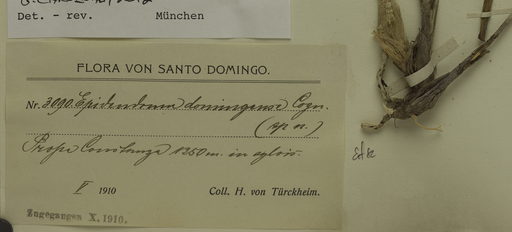 Det. - rev. München
FLORA VON SANTO DOMINGO.
Nr. 3090. Epidendrum domingense Cogn.
(sp. n.)
Prope Constanza 1250 m. in sylvis.
V 1910 Coll. H. von Türckheim.
Zugegangen X. 1910.